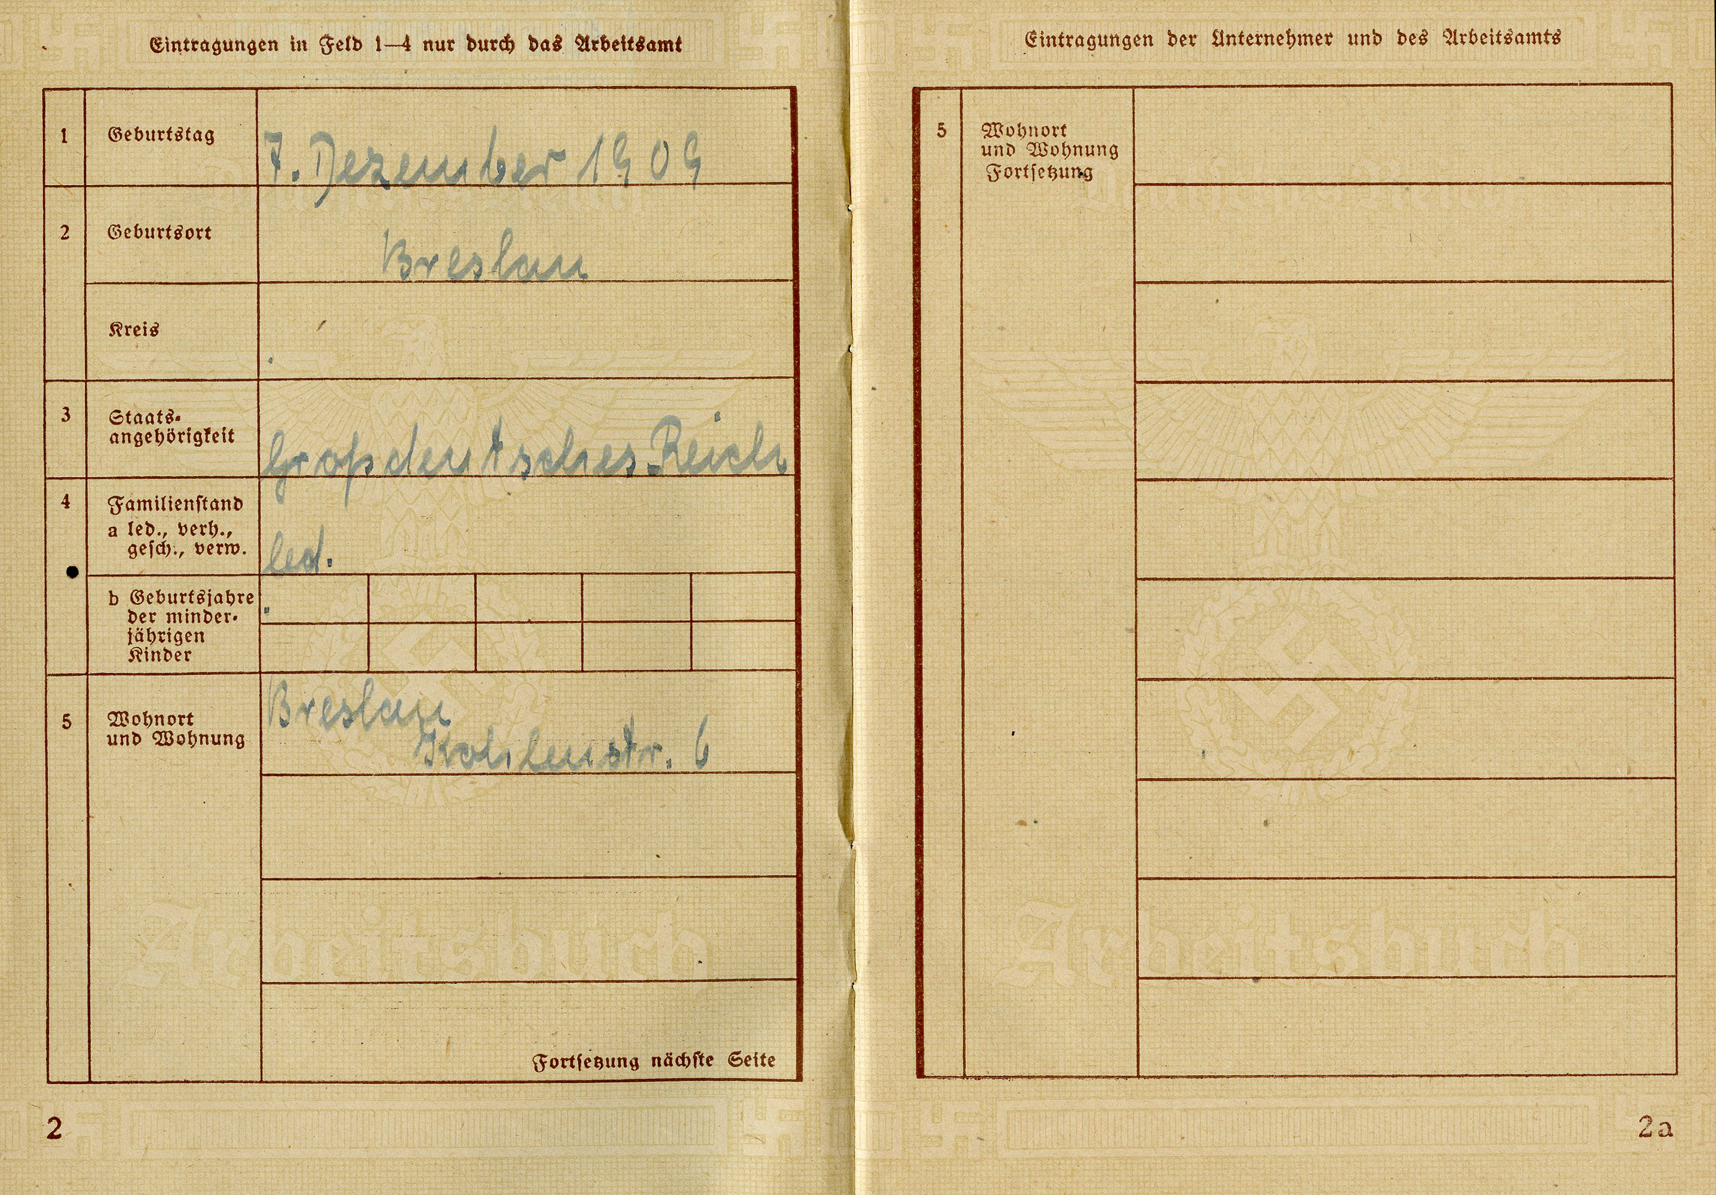 Eintragungen in Feld 1—4 nur durch das Arbeitsamt
1 Geburtstag 7. Dezember 1909
2 Geburtsort Breslau
Kreis
3 Staats-
angehörigkeit Großdeutsches Reich
4 Familienstand
a led., verh.,
gesch., verw. led.
b Geburtsjahre
der minder-
jährigen
Kinder
5 Wohnort
und Wohnung
Breslau
Kohlenstr. 6
Fortsetzung nächste Seite
2
Eintragungen der Unternehmer und des Arbeitsamts
5 Wohnort
und Wohnung
Fortsetzung
2a
Deutsches Reich
Arbeitsbuch
Deutsches Reich
Arbeitsbuch